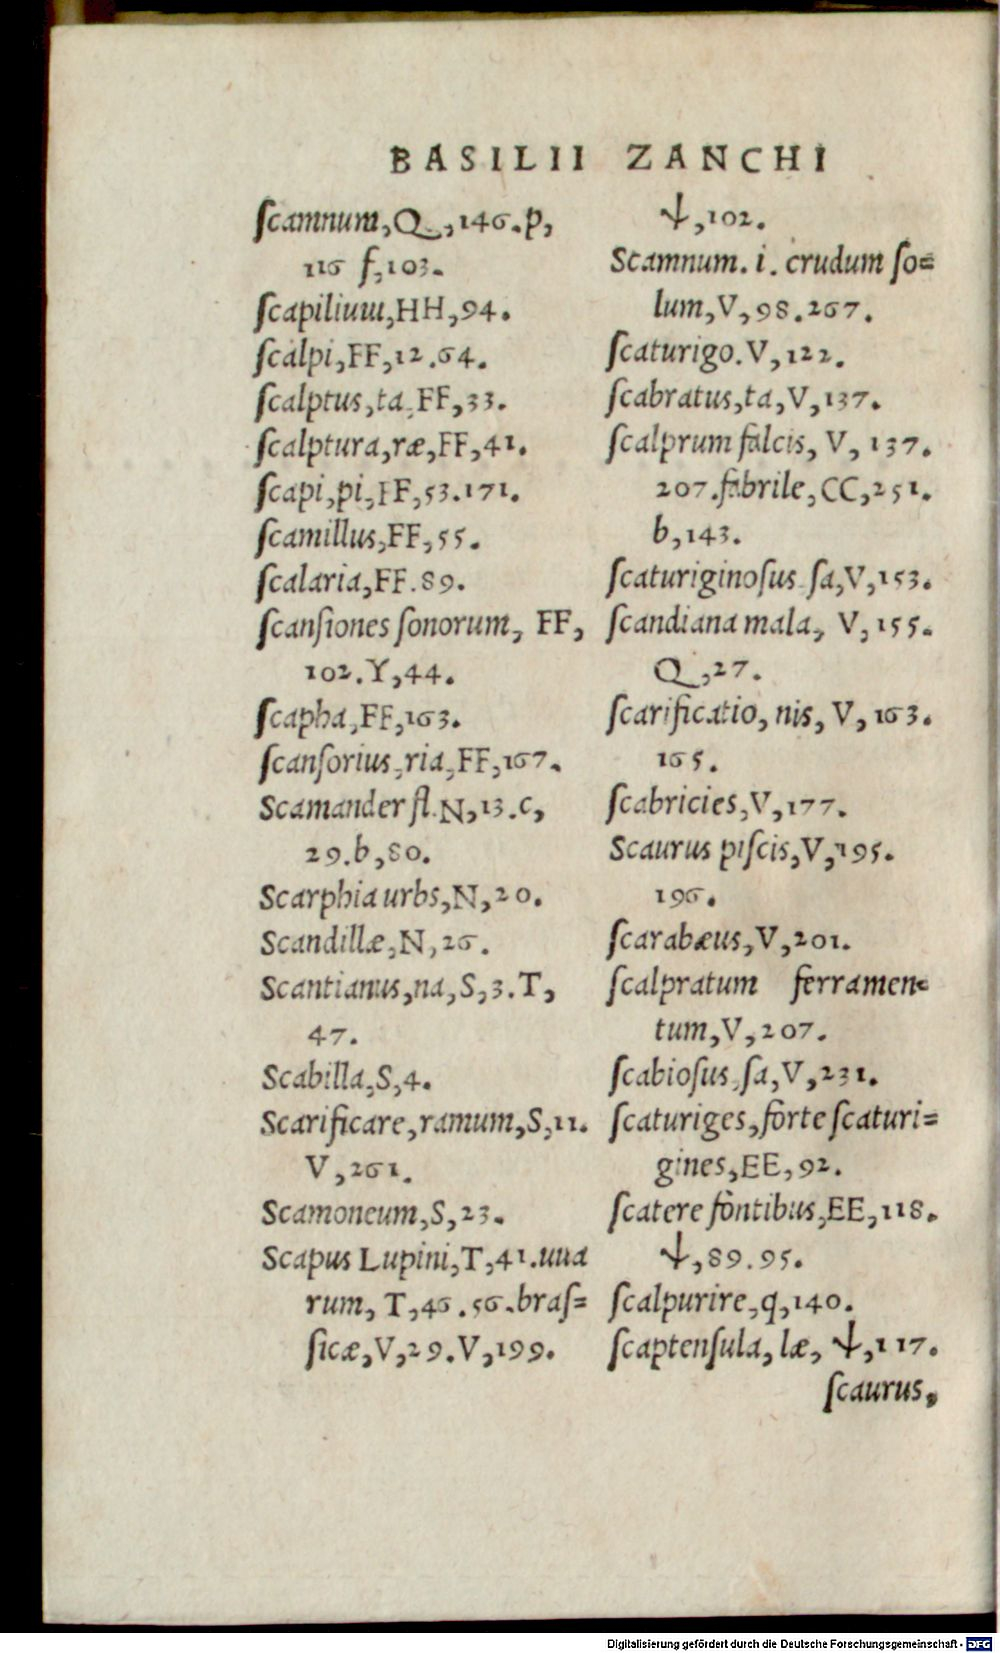 BASILII ZANCHI
ſcamnum,Q,146.p,
116 f,103.
ſcapilium,HH,94.
ſcalpi,FF,12.64.
ſcalptus,ta,FF,33.
ſcalptura,ræ,FF,41.
ſcapi,pi,FF,53.171.
ſcamillus,FF,55.
ſcalaria,FF.89.
ſcanſiones ſonorum, FF,
102.Y,44.
ſcapha,FF,163.
ſcanſorius,ria,FF,167.
Scamander fl.N,13.c,
29.b,80.
Scarphia urbs,N,20.
Scandillæ,N,26.
Scantianus,na,S,3.T,
47.
Scabilla,S,4.
Scarificare,ramum,S,11.
V,261.
Scamoneum,S,23.
Scapus Lupini,T,41.uua
rum, T,46.56.braſ=
ſicæ,V,29.V,199.
ↆ,102.
Scamnum. i. crudum ſo=
lum,V,98.267.
ſcaturigo.V,122.
ſcabratus,ta,V,137.
ſcalprum falcis, V, 137.
207.fabrile,CC,251.
b,143.
ſcaturiginoſus ſa,V,153.
ſcandiana mala, V,155.
Q,27.
ſcarificatio, nis, V, 163.
165.
ſcabricies,V,177.
Scaurus piſcis,V,195.
196.
ſcarabæus,V,201.
ſcalpratum ferramen=
tum,V,207.
ſcabioſus,ſa,V,231.
ſcaturiges,forte ſcaturi=
gines,EE,92.
ſcatere fontibus,EE,118.
ↆ,89.95.
ſcalpurire,q,140.
ſcaptenſula, læ, ↆ,117.
ſcaurus,
Digitalisierung gefördert durch die Deutsche Forschungsgemeinschaft - DFG